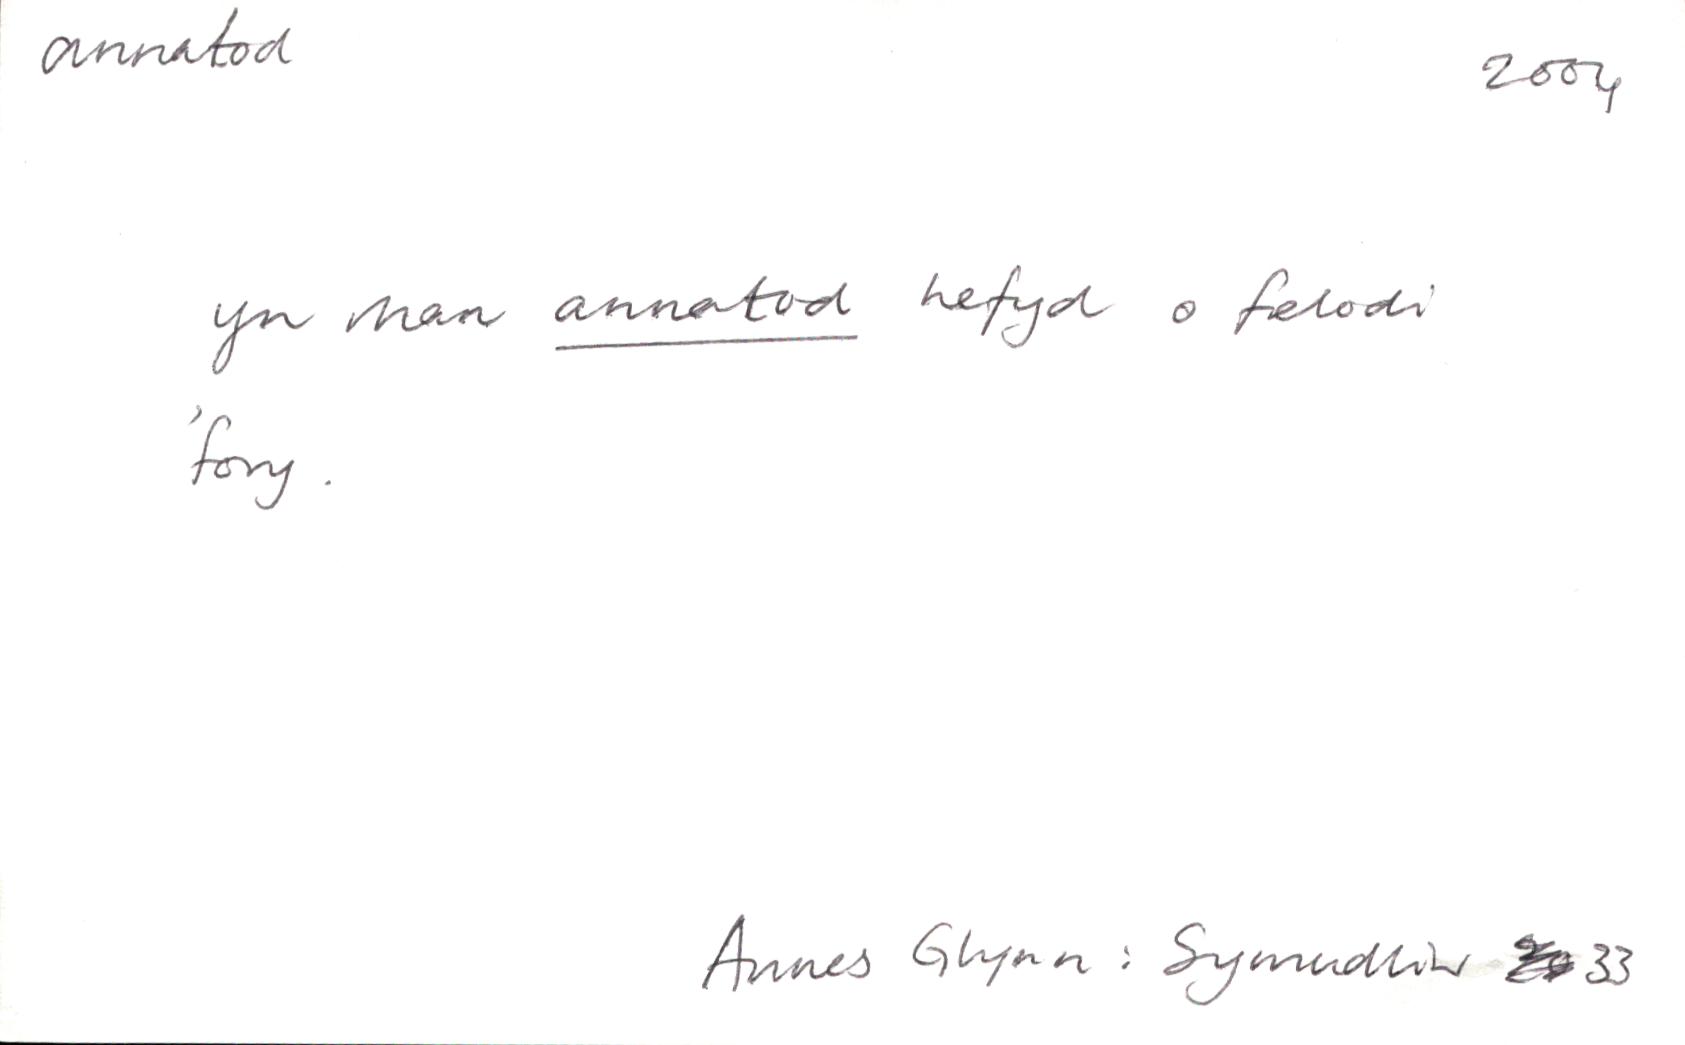 annatod 2004
yn rhan annatod hefyd o felodi
'fory.
Annes Glynn: Symudliw 33